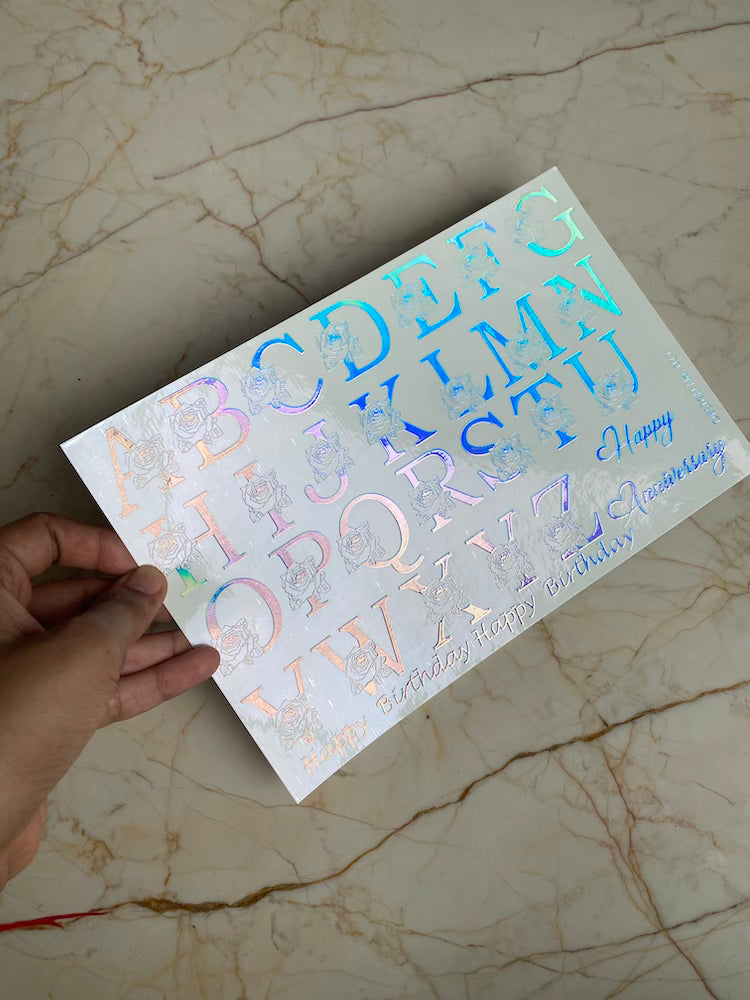 A B C D E F G
H I J K L M N
O P Q R S T U
V W X Y Z
Happy
Anniversary
Happy Birthday Happy Birthday